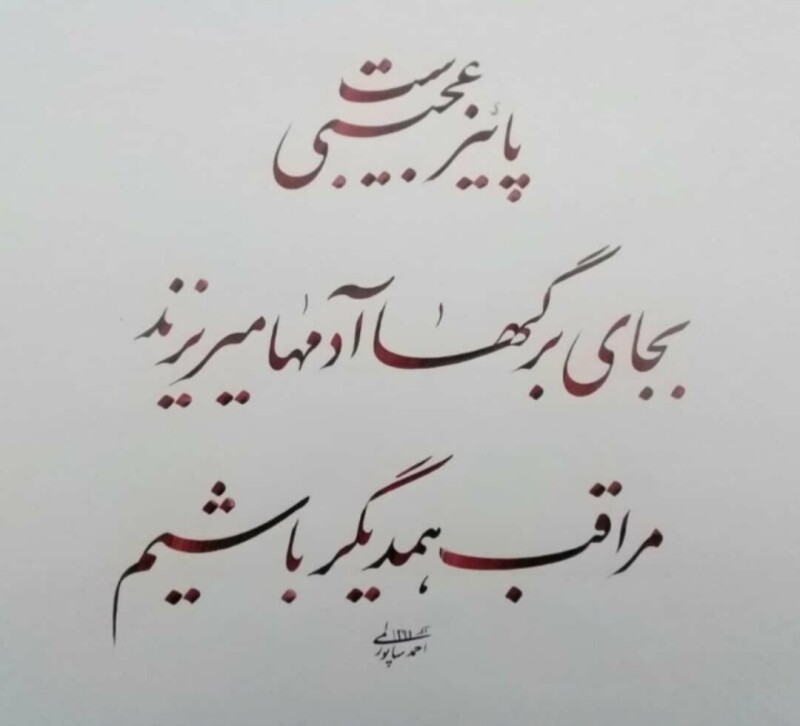 پائیز عجیبی ست
بجای برگها آدمها میریزند
مراقب همدیگر باشیم
احمد ساپورالمی